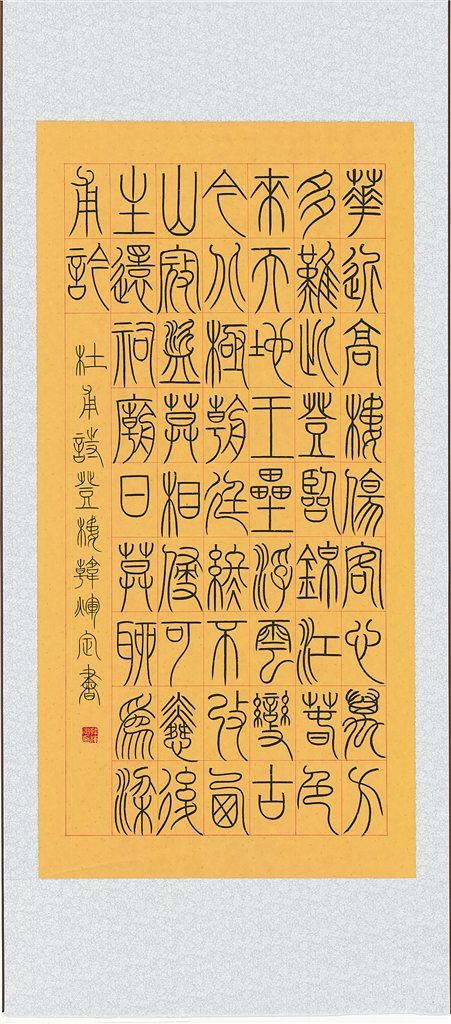 華近高樓傷客心萬方
多難此登臨錦江春色
來天地玉壘浮雲變古
今北極朝廷終不改西
山寇盜莫相侵可憐後
主還祠廟日莫聊為梁
甫訡
杜甫詩登樓韓煇定書